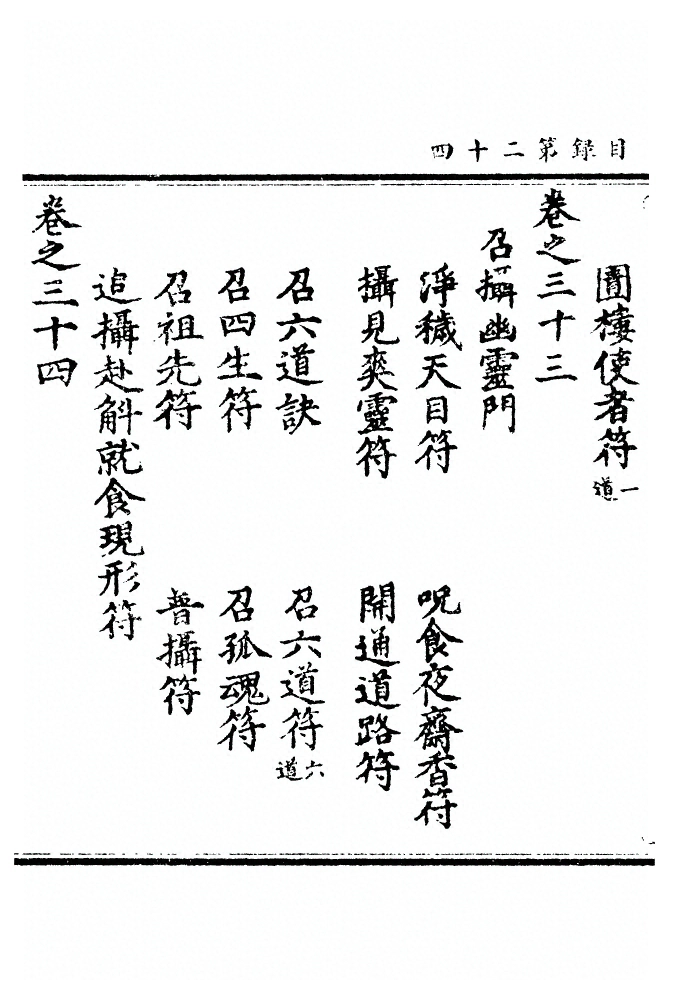 目録第二十四
圊棲使者符一道
卷之三十三
召攝幽靈門
淨穢天目符 呪食夜齋香符
攝見爽靈符 開通道路符
召六道訣 召六道符六道
召四生符 召孤魂符
召祖先符 普攝符
追攝赴斛就食現形符
卷之三十四